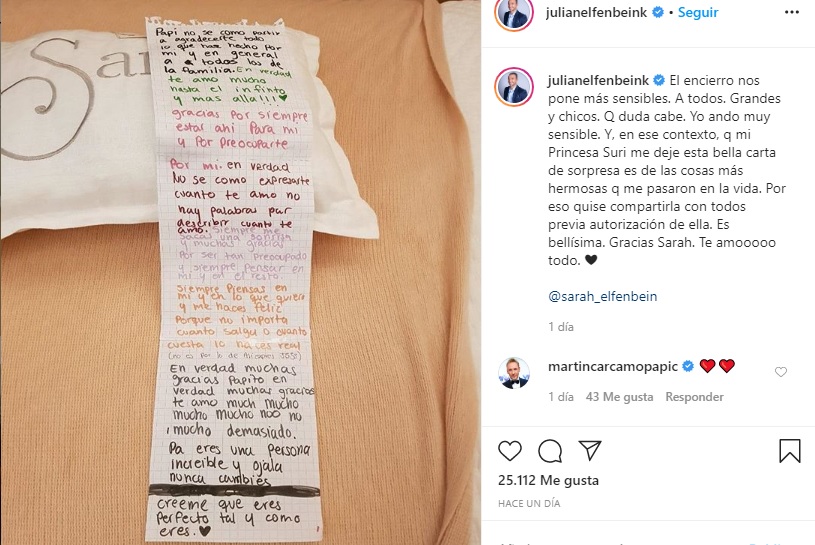 Sar
Papi no se como partir
a agradecerte todo
lo que haz hecho por
mi y en general
a todos los de
la familia. En verdad
te amo mucho
hasta el infinto
y mas alla!!! ♥
gracias por siempre
estar ahi Para mi
y Por Preocuparte
Por mi. en verdad
No se como expresarte
cuanto te amo no
hay palabras par
describir cuanto te
amo. Siempre me
sacas una sonrisa
y muchas gracias
Por ser tan preocupado
y siempre pensar en
mi y en el resto.
Siempre Piensas en
mi y en lo que quiero
y me haces feliz
Porque no importa
cuanto salga o cuanto
cuesta lo haces real
(no es por lo de
En verdad muchas
gracias Papito en
verdad muchas gracias
te amo much mucho
mucho mucho noo no
mucho demasiado.
Pa eres una persona
increible y ojala
nunca cambies
creeme que eres
Perfecto tal y como
eres. ♥
julianelfenbeink • Seguir
julianelfenbeink El encierro nos
pone más sensibles. A todos. Grandes
y chicos. Q duda cabe. Yo ando muy
sensible. Y, en ese contexto, q mi
Princesa Suri me deje esta bella carta
de sorpresa es de las cosas más
hermosas q me pasaron en la vida. Por
eso quise compartirla con todos
previa autorización de ella. Es
bellísima. Gracias Sarah. Te amooooo
todo. 🖤
@sarah_elfenbein
1 día
martincarcamopapic ❤️❤️
1 día 43 Me gusta Responder
25.112 Me gusta
HACE UN DÍA